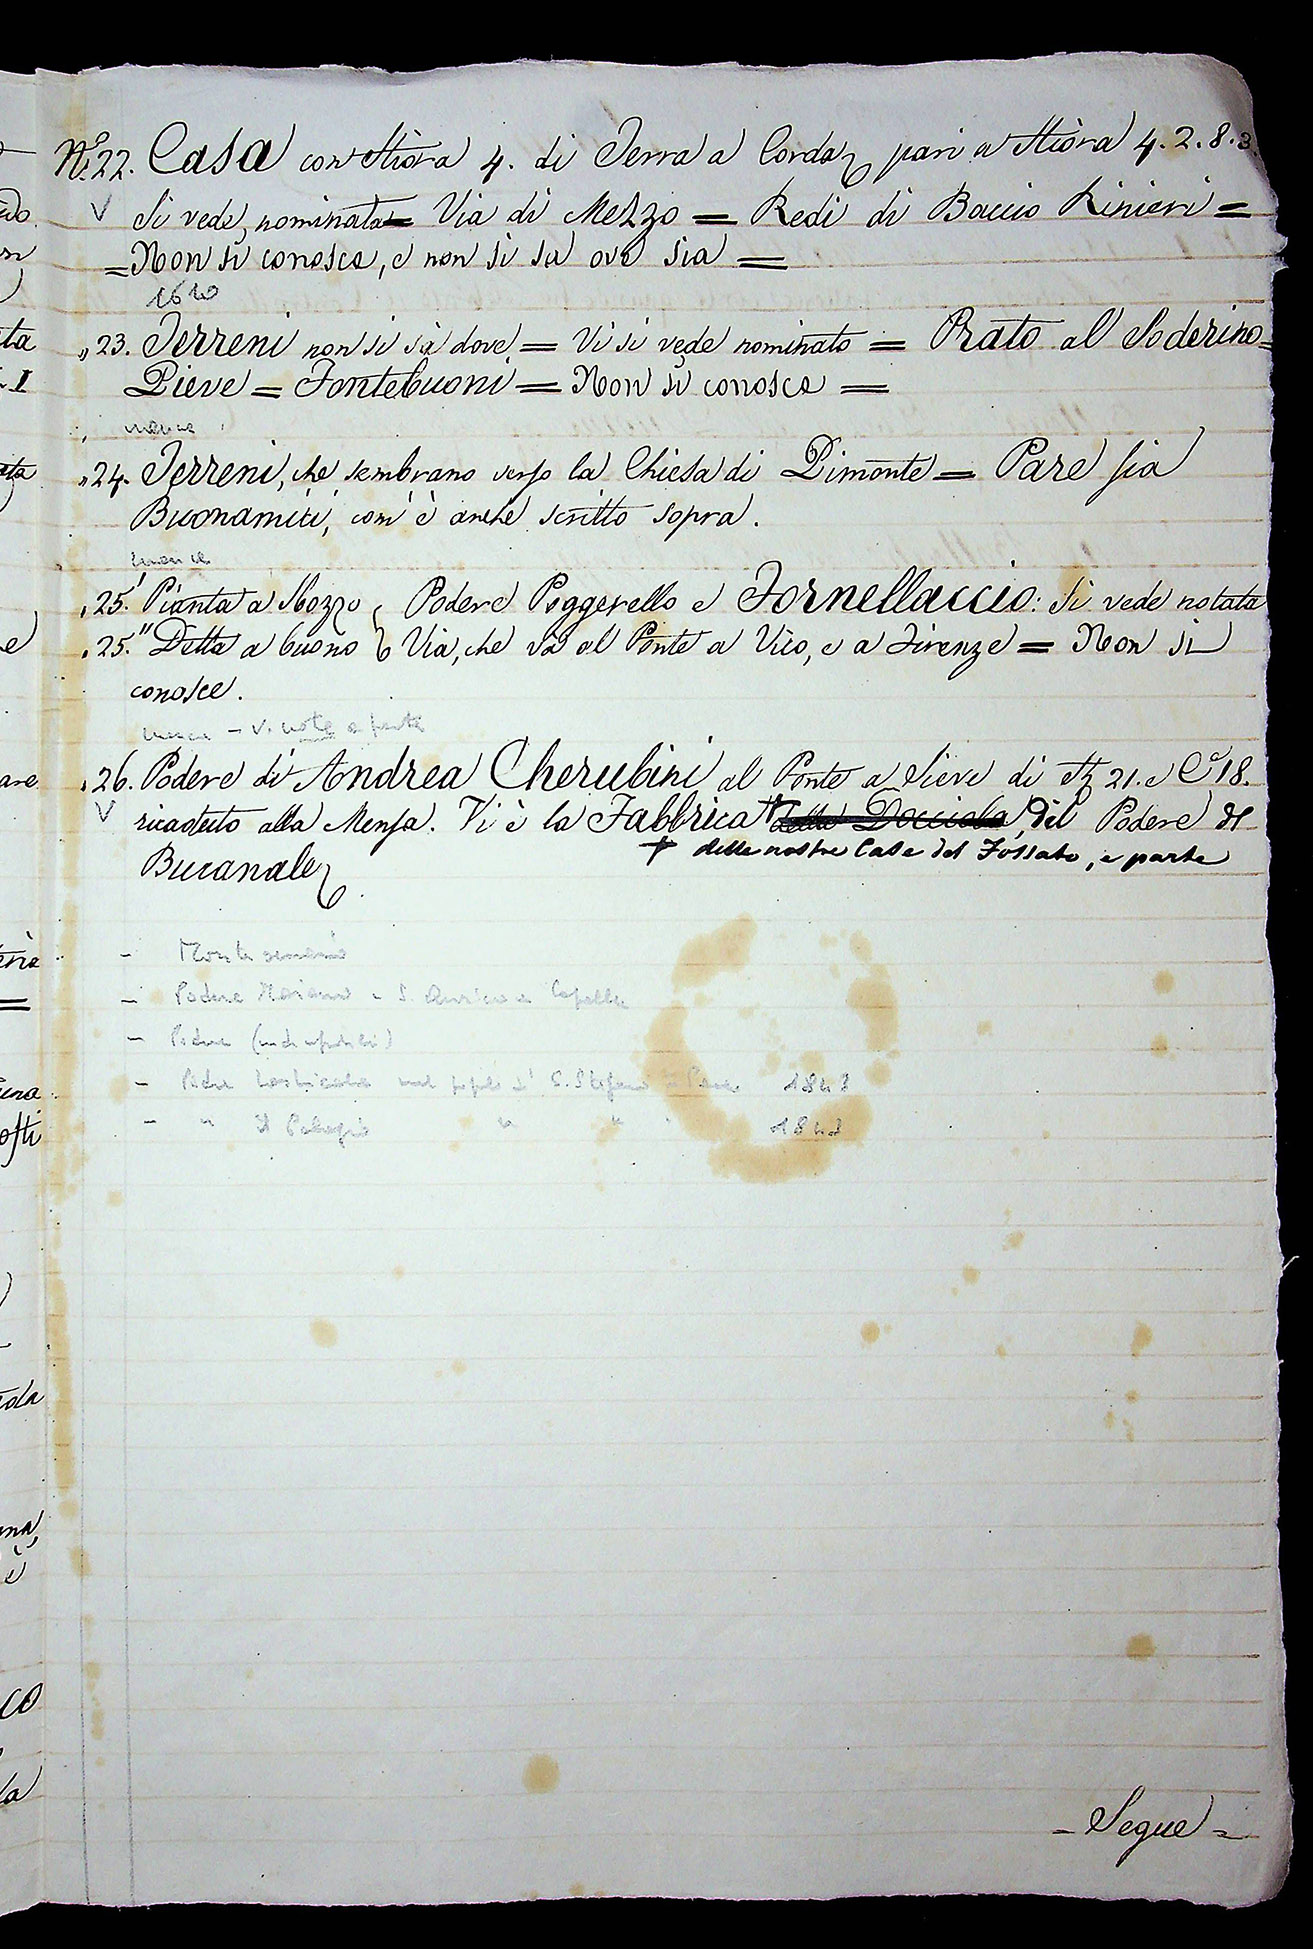 N.º 22. Casa con Stiora 4. di Terra a Corda, pari a Stiora 4. 2. 8. 3.
V Si vede, nominata = Via di Mezzo = Redi di Baccio Rinieri =
= Non si conosce, e non si sa ove sia =
1610
" 23. Terreni non si sà dove = Vi si vede nominato = Prato al Soderino =
Pieve = Fontebuoni = Non si conosce =
manca
" 24. Terreni, che sembrano verso la Chiesa di Pimonte = Pare sia
Buonamici, com'è anche scritto sopra.
manca
" 25.' Pianta a Mozzo Podere Poggerello e Fornellaccio: Si vede notata
" 25." Detta a buono Via, che và al Ponte a Vico, e a Firenze = Non si
conosce.
manca - V. note a parte
" 26. Podere di Andrea Cherubini al Ponte a Sieve di 21. e C. 18.
V ricaduto alla Mensa. Vi è la Fabbrica + della Docciola del Podere di
+ delle nostre Case del Fossato, e parte
Bucanale
-
- Podere a Capalle
- Podere
- Podere nel popolo di S. Stefano Pane 1843
- " Il Palagio " " 1843
= Segue =